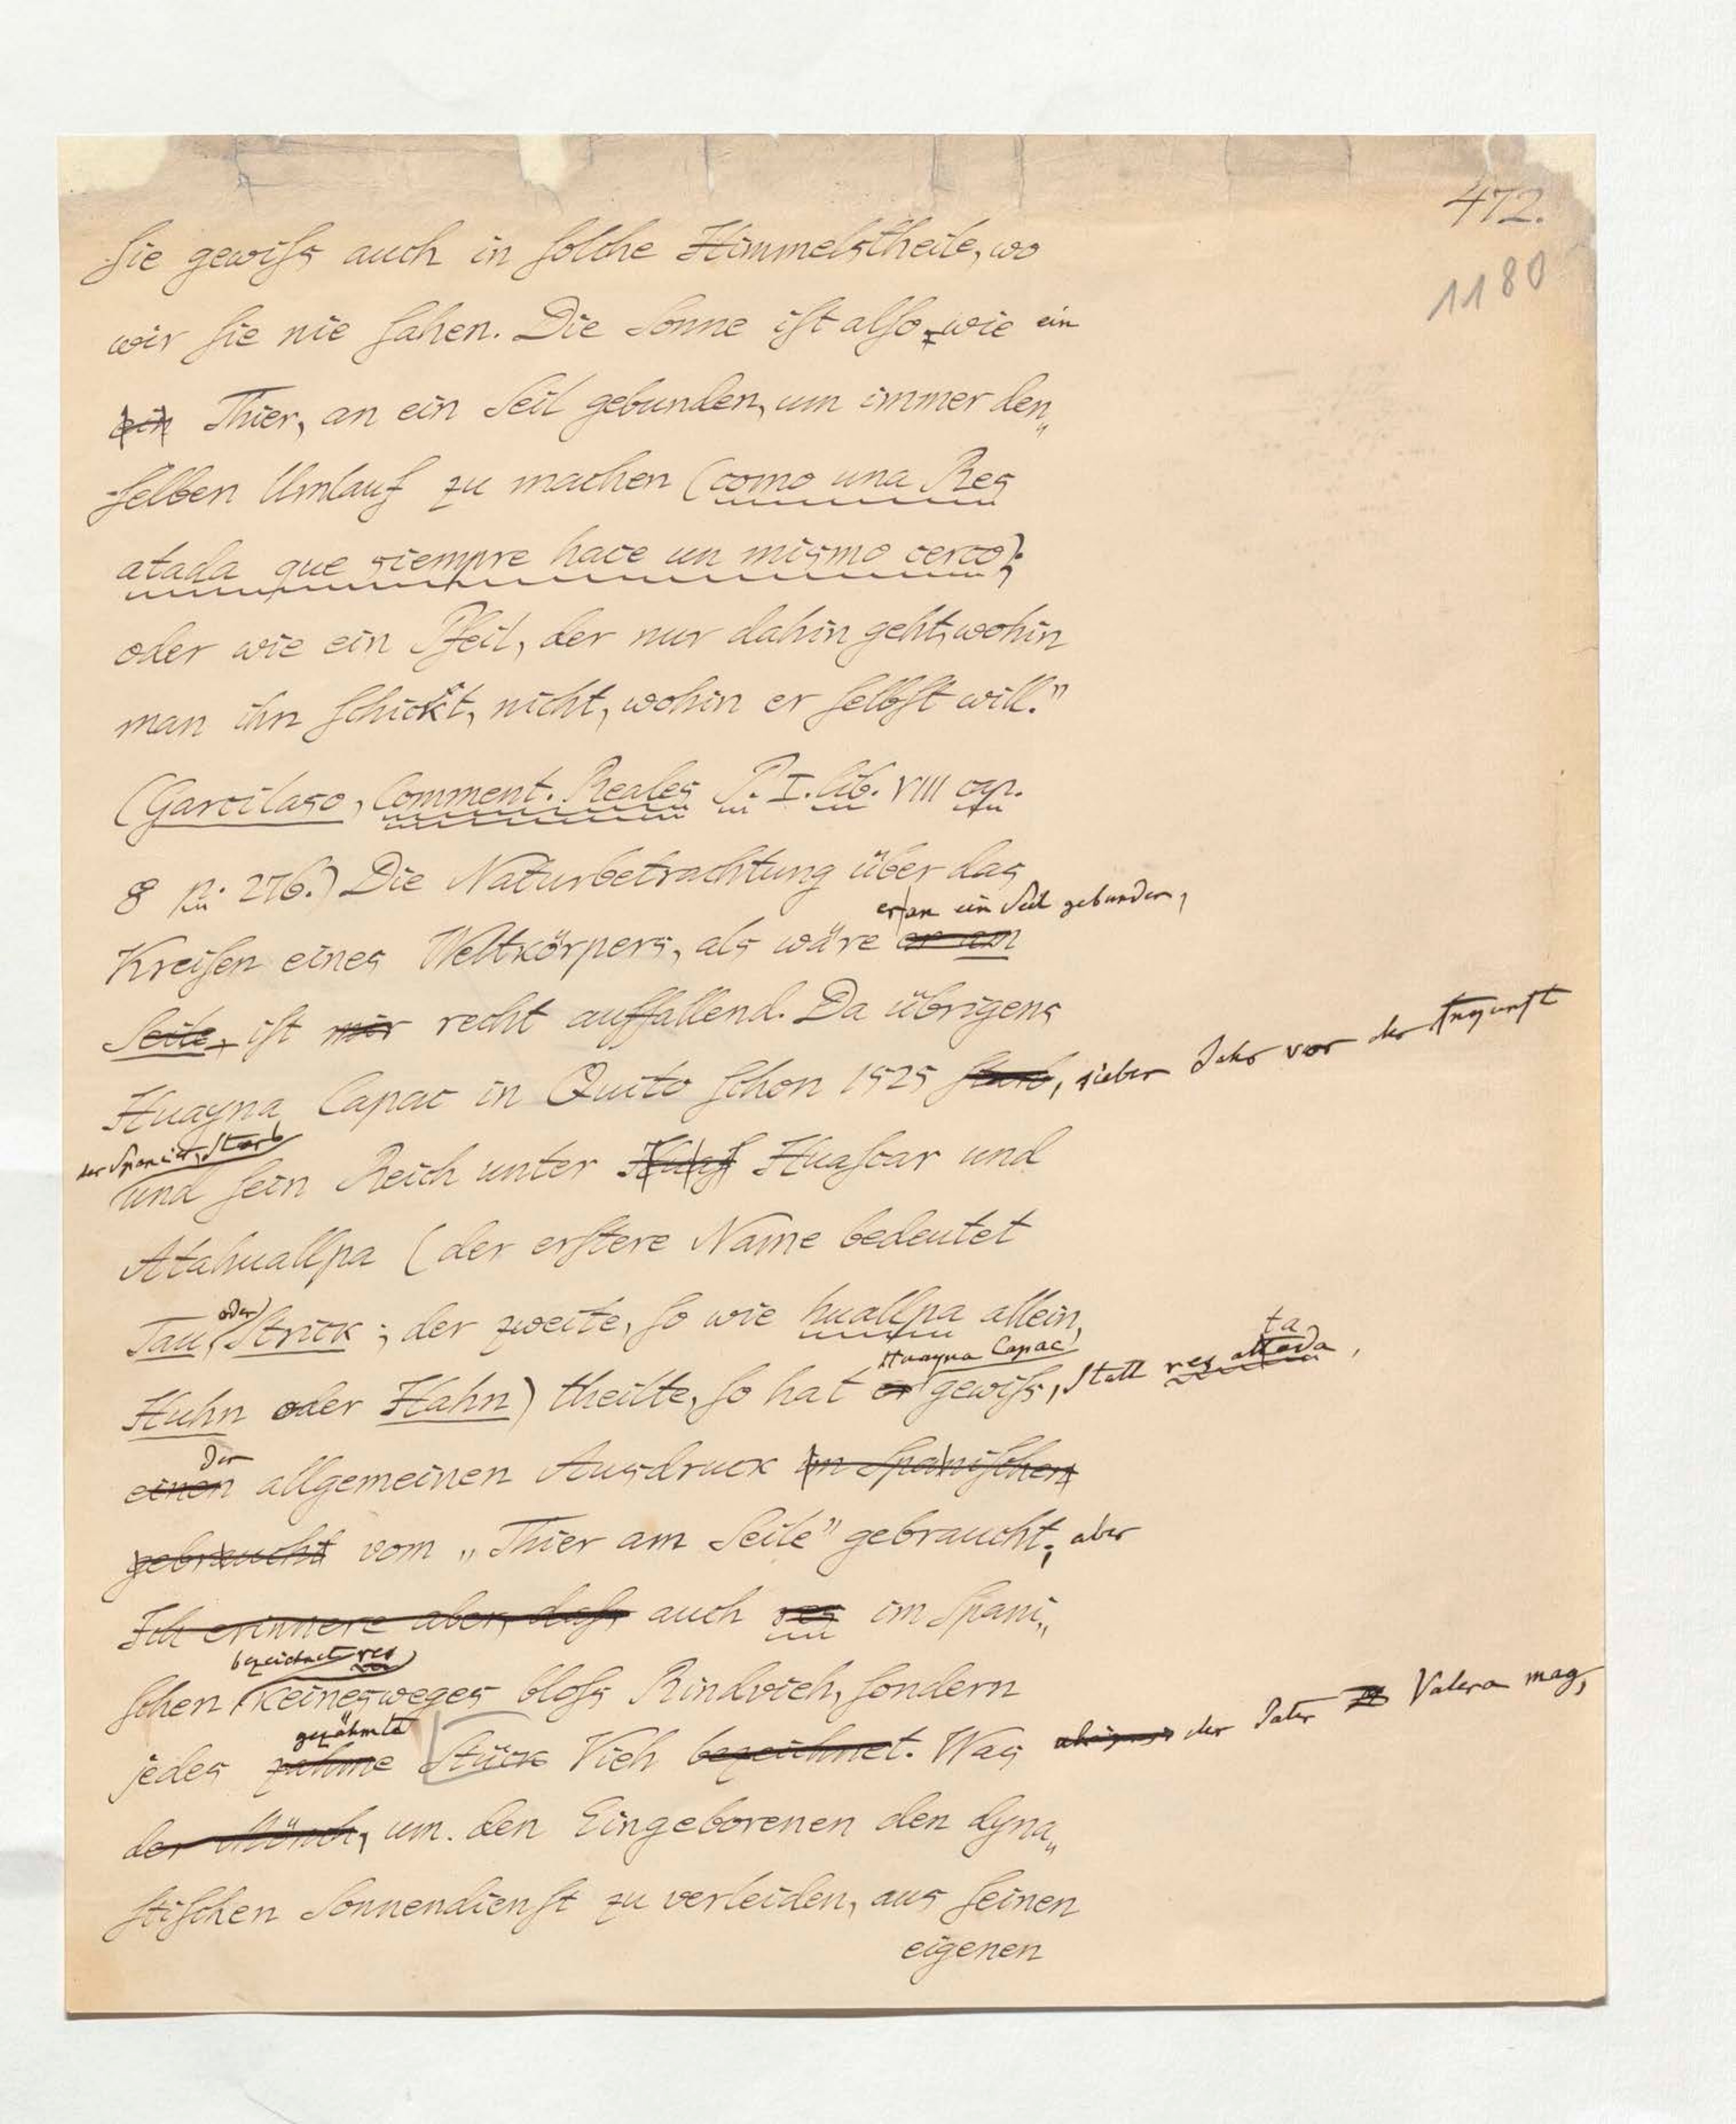 472.
1180
Sie gewiss auch in solche Himmelstheile, wo
wir sie nie sahen. Die Sonne ist also, wie ein
ein Thier, an ein Seil gebunden, um immer den„
selben Umlauf zu machen (como una Res
atada que siempre hace un mismo cerco);
oder wie ein Pfeil, der nur dahin geht, wohin
man ihn schickt, nicht, wohin er selbst will."
(Garcilaso, Comment. Reales P. I. lib. VIII cap.
8 p. 276.) Die Naturbetrachtung über das
er an ein Seil gebunden,
Kreisen eines Weltkörpers, als wäre er am
Seile, ist mir recht auffallend. Da übrigens
Huayna Capac in Quito schon 1525 starb, sieben Jahr vor der Ankunft
der Spanier, starb
und sein Reich unter Huas Huascar und
Atahuallpa (der erstere Name bedeutet
oder
Tau, Strick; der zweite, so wie huallpa allein,
Huayna Capac
ta
Huhn oder Hahn) theilte, so hat er gewiss, statt res attada,
den
einen allgemeinen Ausdruck im Spanischen
gebraucht vom „Thier am Seile" gebraucht; aber
Ich erinnere aber, dass auch res im Spani„
bezeichnet res
schen keinesweges bloss Rindvieh, sondern
gezähmte
jedes zahme Stück Vieh bezeichnet. Was der Pater Valera mag,
der Mönch, um den Eingeborenen den dyna„
stischen Sonnendienst zu verleiden, aus seinen
eigenen